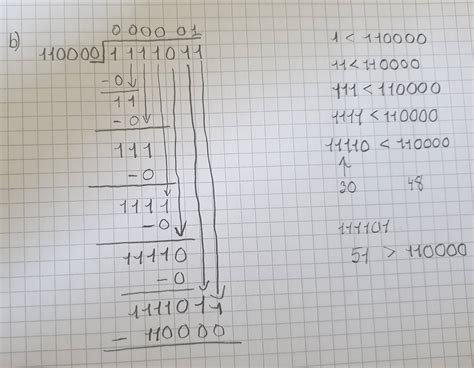 b)
0 0 0 0 0 1
110000 1 1 1 1 0 1 1
- 0
1 1
- 0
1 1 1
- 0
1 1 1 1
- 0
1 1 1 1 0
- 0
1 1 1 1 0 1 1
- 1 1 0 0 0 0
1 < 110000
11 < 110000
111 < 110000
1111 < 110000
11110 < 110000
30 48
111101
51 > 110000